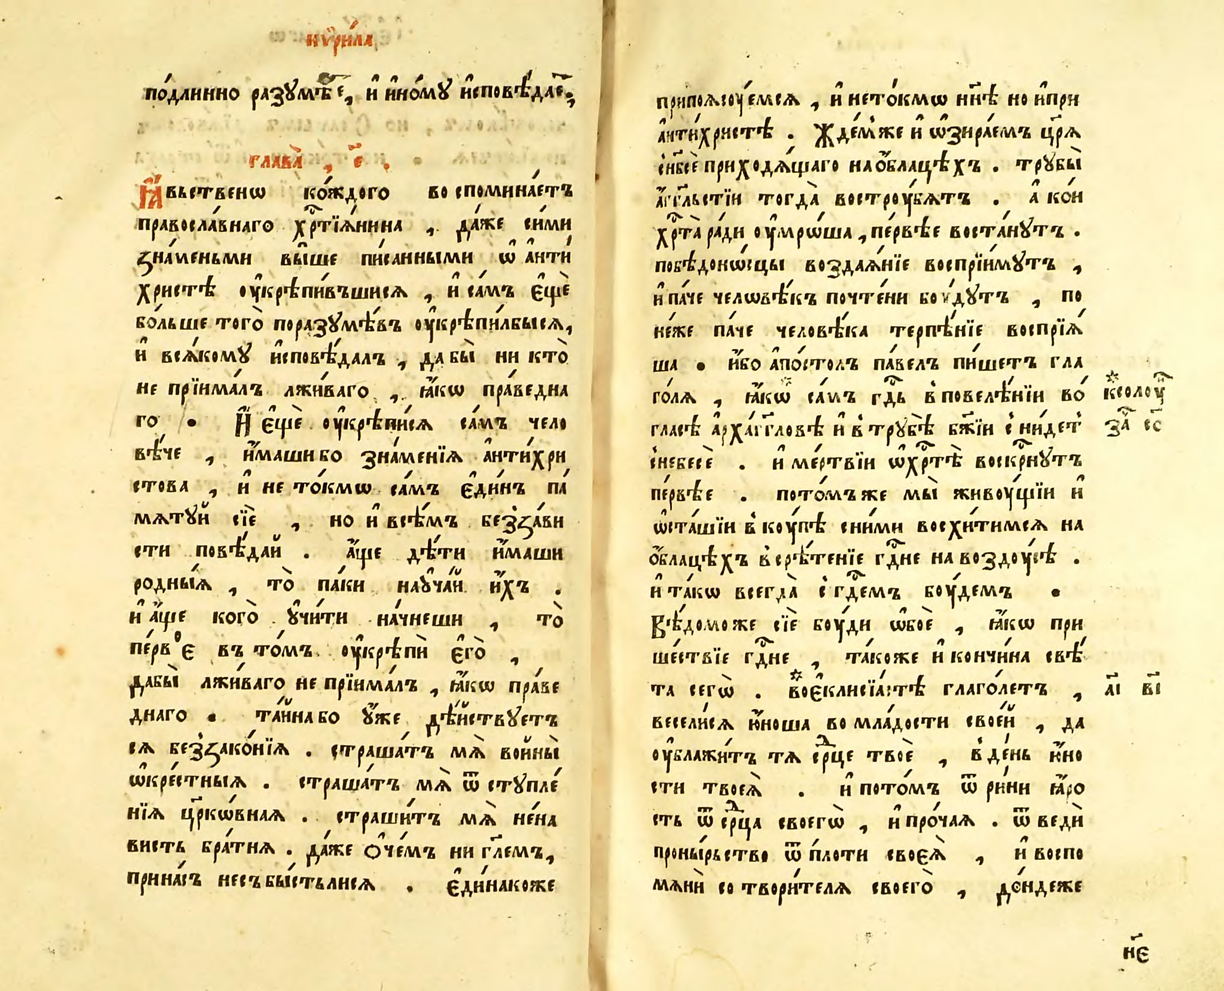 кѷри́ла
по́длинно разꙋмѣ́е, и҆ и҆но́мꙋ и҆сповѣ́дае,
глава̀ , є҃ .
Ꙗ҆́вьственѡ ко́ждого воспомина́етъ
правосла́внаго хр҃тїѧ́нина , да́же си́ми
зна́меньми вы́ше пи́санными ѡ҆ а҆нти
христѣ оу҆крѣпи́въшисѧ , и҆ са́мъ є҆щѐ
бо́льше того̀ поразꙋмѣ́въ оу҆крѣпи́лбысѧ,
и҆ всѧ́комꙋ и҆сповѣ́далъ , дабы̀ ни кто̀
не прїима́лъ лжи́ваго , ꙗ҆́кѡ пра́ведна
го . И҆ є҆щѐ оу҆крѣпи́сѧ са́мъ чело
вѣ́че , и҆́маши бо зна́менїѧ а҆нтихри
стова , и҆ не то́кмѡ са́мъ є҆ди́нъ па́
мѧтꙋй сїѐ , но и҆ всѣ́мъ без̾зави
сти повѣ́дай . а҆́ще дѣ́ти и҆́маши
родны́ѧ , то̀ па́ки наꙋча́й и҆́хъ .
и҆ а҆́ще кого̀ ꙋчи́ти на́чнеши , то̀
пе́рвоє въ то́мъ оу҆крѣпѝ є҆го̀ ,
дабы̀ лжи́ваго не прїима́лъ , ꙗ҆́кѡ пра́ве
днаго . та́йна бо ꙋ҆жѐ дѣ́йствꙋетъ
сѧ без̾зако́нїѧ . страша́тъ мѧ̀ войны̀
ѡ҆кре́стныѧ . страша́тъ мѧ̀ ѿ стꙋпле́
нїѧ цр҃кѡ́внаѧ . страши́тъ мѧ̀ не́на
висть бра́тнѧ . да́же ѻ҆ че́мъ ни гл҃емъ,
при на́съ несъбы́стьлисѧ . є҆ди́накоже
припоѧсоу́емсѧ , и҆ нетокмѡ нн҃ѣ но и҆ при
а҆нти́христѣ . Жде́мже и҆ ѡ҆зира́емъ цр҃ѧ
снб҃сѐ приходѧ́щаго на ѻ҆́блацѣхъ . трꙋбы̀
а҆́гг҃льстїи тогда̀ востроу́бѧтъ . а҆ ко́и
хр҃та̀ ра́ди оу҆мро́ша , пе́рвѣе воста́нꙋтъ .
побѣдонѡ́сцы воздаѧ́нїе воспрїи́мꙋтъ ,
и҆ па́че человѣ́къ почте́ни боу́дꙋтъ , по
не́же па́че человѣ́ка терпѣ́нїе воспрїѧ́
ша . и҆́бо а҆по́столъ па́велъ пи́шетъ гла
го́лѧ , ꙗ҆́кѡ са́мъ гд҃ь в̾ повелѣ́нїи во
гла́сѣ а҆рха́ггловѣ и҆ в̾ трꙋбѣ̀ бж҃їи сни́детъ
снебесѐ . и҆ ме́ртвїи ѡ҆ хр҃тѣ̀ воскр҃нꙋтъ
пе́рвѣе . пото́мъ же мы̀ живоу́щїи и҆
ѡ҆ста́шїи в̾ коу́пѣ сни́ми восхи́тимсѧ на
ѻ҆́блацѣхъ в̾ срѣ́тенїе гд҃не на воздоу́сѣ .
и҆ та́кѡ всегда̀ с̾ гд҃емъ боу́демъ .
Вѣ́доможе сїѐ боу́ди ѻ҆бо́е , ꙗ҆́кѡ при
ше́ствїе гд҃не , та́коже и҆ кончи́на свѣ́
та сегѡ̀ . воє҆клисїа́стѣ глаго́летъ ,
весели́сѧ ю҆́ноша во мла́дости свое́й , да
оу҆блажи́тъ тѧ ср҃це твоѐ , в̾ де́нь ю҆́но
сти твоеѧ̀ . и҆ пото́мъ ѿ ри́ни ꙗ҆́ро
сть ѿ ср҃ца своегѡ̀ , и҆ про́чаѧ . ѿ ведѝ
проны́рьство ѿ пло́ти своеѧ̀ , и҆ воспо
мѧнѝ со твори́телѧ своего̀ , до́ндеже
к̾солоу́
за҃ со҃
а҃і в҃і
н҃є